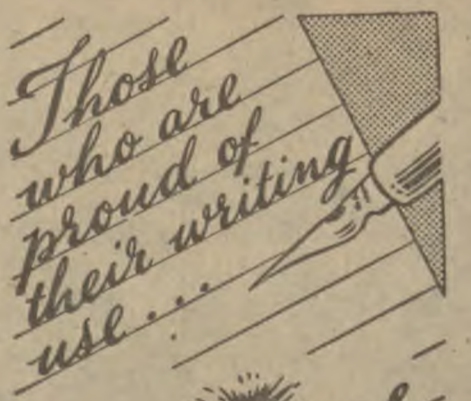 Those
who are
proud of
their writing
use...